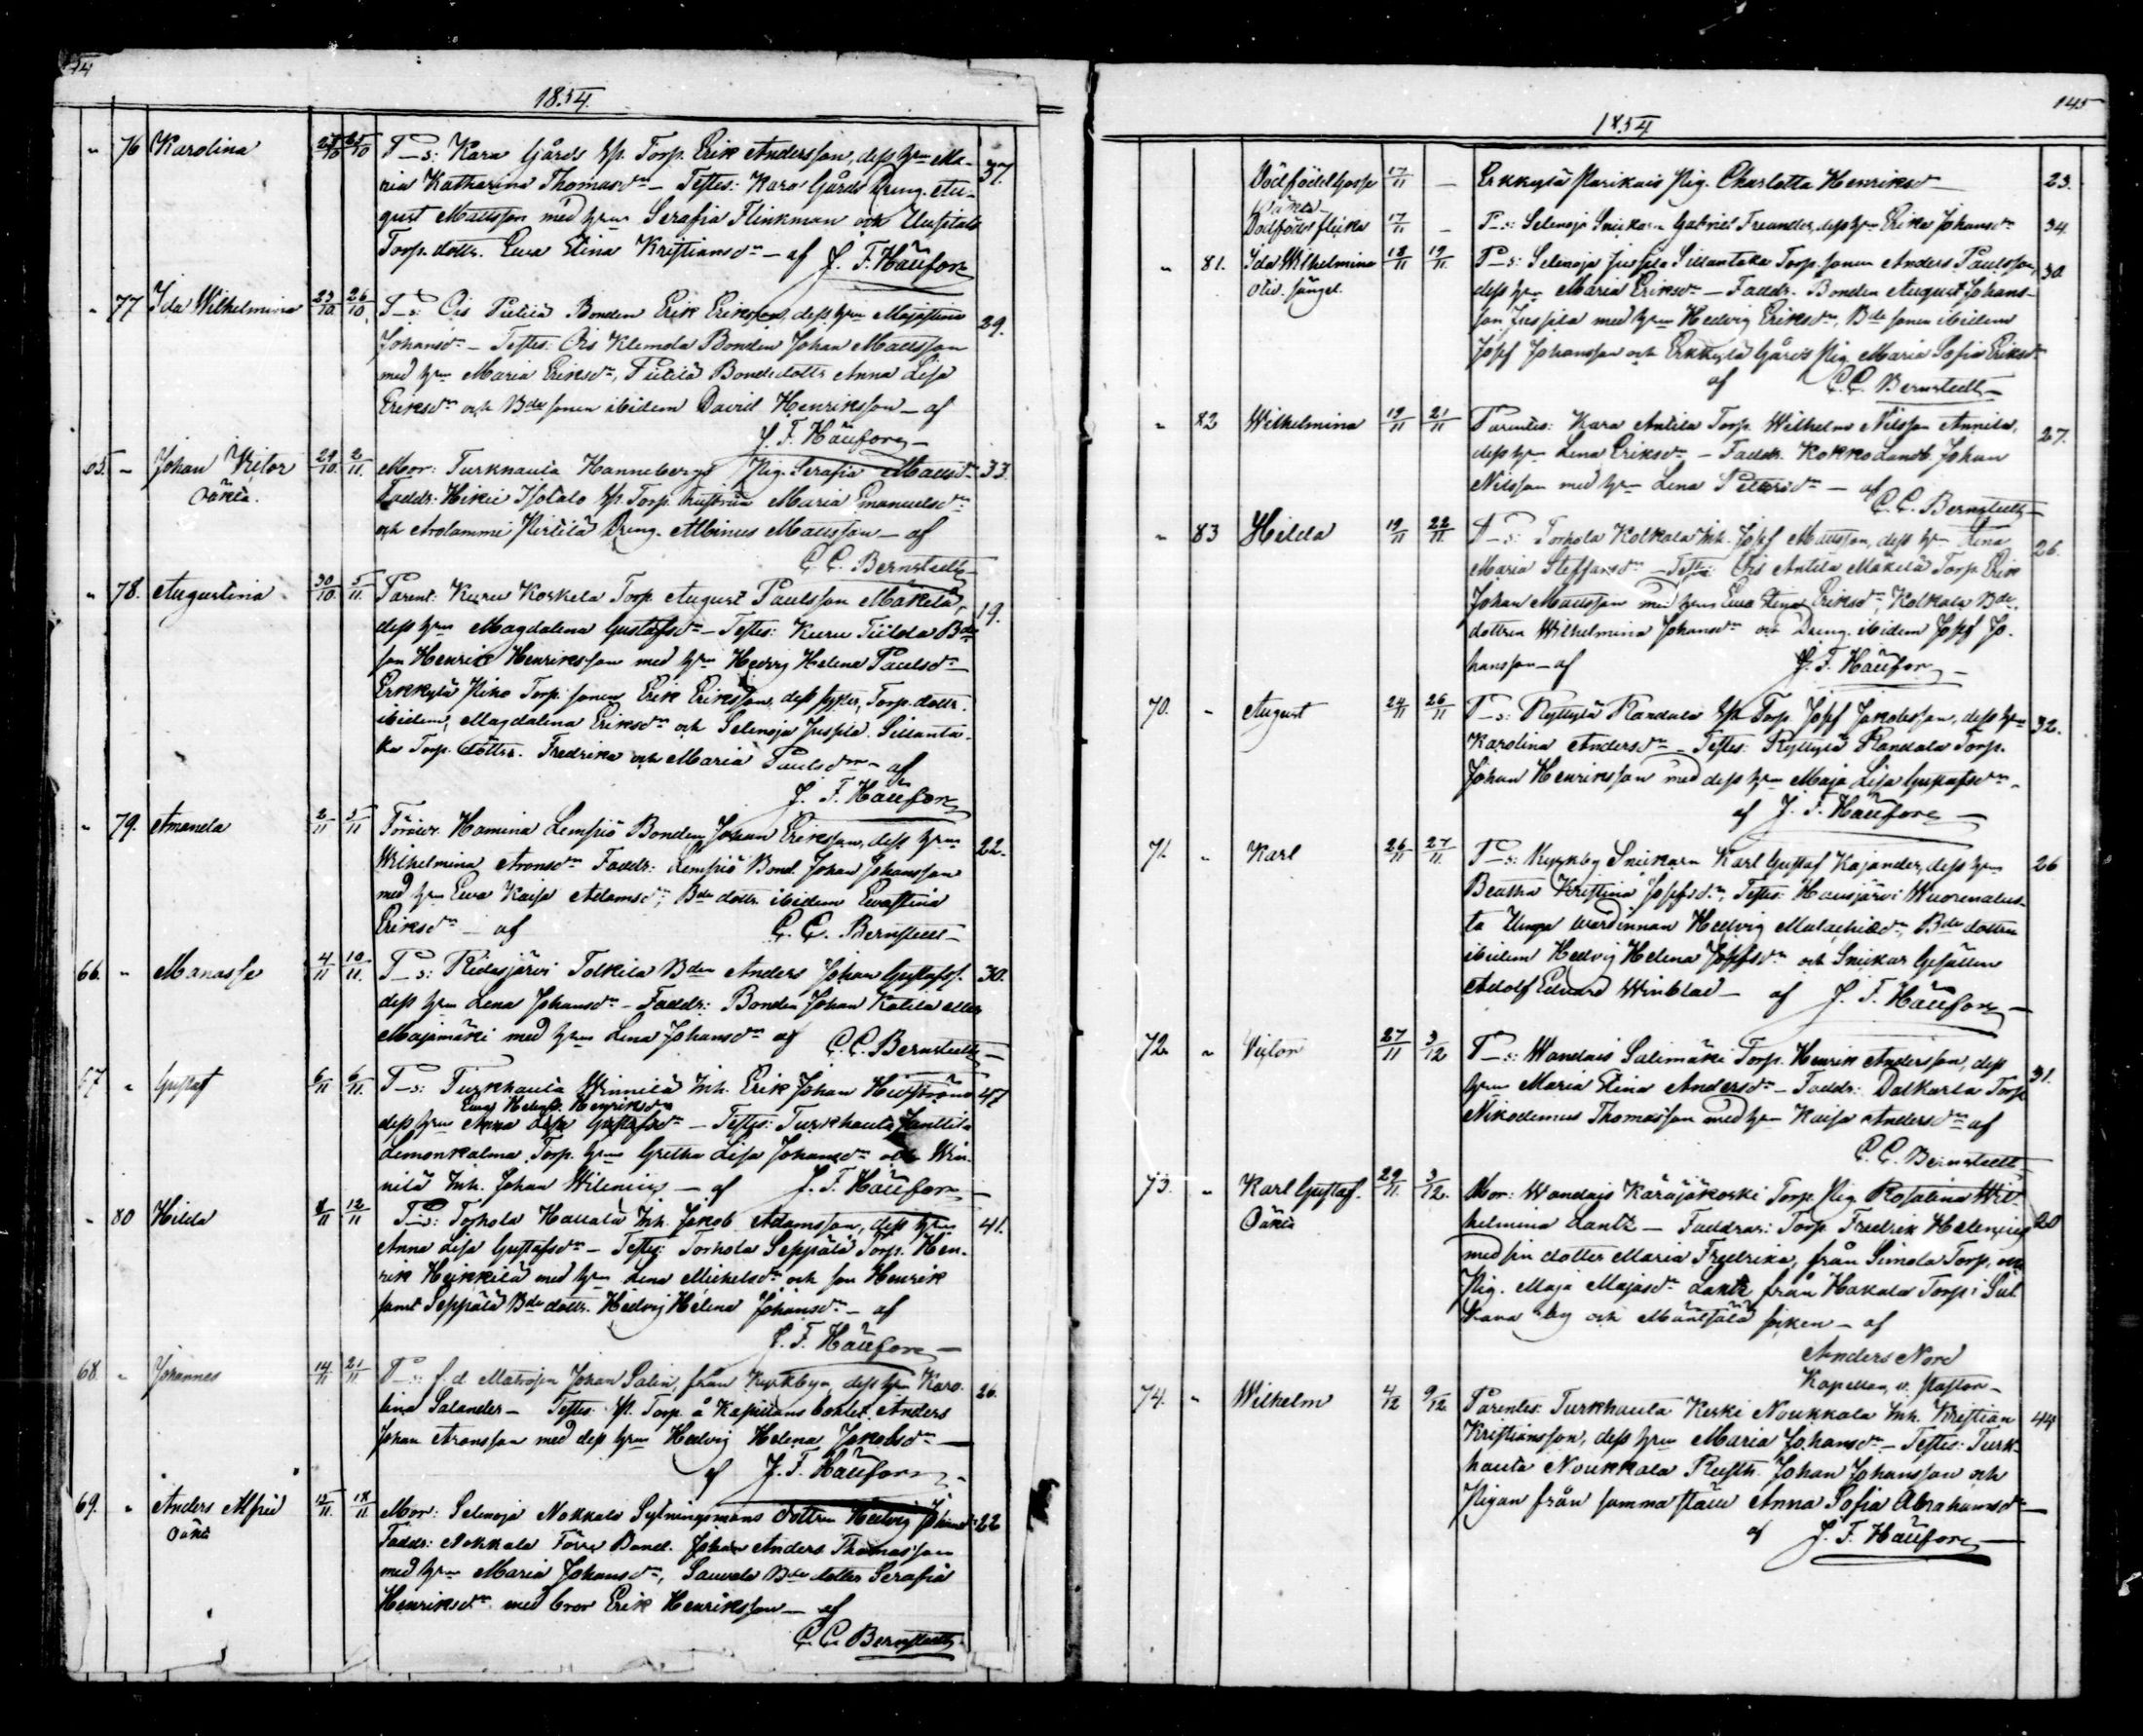 1854.
" 76 Karolina 23/10 25/10 P_s: Kara Gårds Sp. Torp. Erik Andersson, dess hru Ma- 37.
ria Katharina Thomasdr – Testes: Kara Gårds Dreng. Au-
gust Mattsson med hru Serafia Flinkman och Uusitalo
Torp. dottr. Eva Stina Kristiansdr – af J. F. Häufore
" 77 Ida Wilhelmina 23/10 26/10 P_s: Ois Pietilä Bonden Erik Eriksson, dess hru Majastina 29.
Johansdr – Testes: Ois Klemola Bonden Johan Mattsson
med hru Maria Eriksdr, Pietilä Bondedottr Anna Lisa
Eriksdr och Bde sonen ibidem David Henriksson – af
J. F. Häufore
65. – Johan Viktor 29/10 2/11 Mor: Turkhauta Hannebergs Pig. Serafia Mattsdr 33.
Oäkta. Faddr: Hikie Isotalo Sp. Torp. hustrun Maria Emanuelsdr
och Arolammi Pirtilä Dreng. Albinus Mattsson – af
C. C. Bernstedt
" 78. Augustina 30/10 5/11 Parent: Kuru Koskela Torp. August Paulsson Mäkelä, 19.
dess hru Magdalena Gustafsdr – Testes: Kuru Tiilola Bde
son Henrik Henriksson med hru Hedvig Helena Paulsdr
Erkkylä Torp. sonen Erik Eriksson, dess syster, Torp. dottr.
ibidem, Magdalena Eriksdr och Selenoja Jussila Sillanta-
ka Torp. döttr. Fredrika och Maria Paulsdr – af
J. F. Häufore
" 79. Amanda 2/11 5/11 Föräldr. Hamina Lempiö Bonden Johan Eriksson, dess hru 22.
Wilhelmina Aronsdr Faddr: Lempiö Bond. Johan Johansson
med hru Eva Kaisa Adamsdr, Bde dottr. ibidem Evastina
Eriksdr – af C. C. Bernstedt
66. " Manasse 4/11 10/11 P_s: Ridasjärvi Tolkila Bden Anders Johan Gustafss. 30.
dess hru Lena Johansdr – Faddr: Bonden Johan Katila eller
Majamäki med hru Lena Johansdr af C. C. Bernstedt
67 " Gustaf 6/11 6/11 P_s: Turkhauta Winnilä Inh. Erik Johan 47
Eva Helena Henriksdr
dess hru Anna Lisa Gustafsdr – Testes: Turkhauta Janttila
Lemonkalma Torp. hru Gretha Lisa Johansdr och Win-
nilä Inh. Johan Wilenius – af J. F. Häufore
" 80 Hilda 8/11 12/11 P_s: Torhola Hallala Inh. Jakob Adamsson, dess hru 41.
Anna Lisa Gustafsdr – Testes: Torhola Seppälä Torp. Hen-
rik Heikkilä med hru Lena Michelsdr och son Henrik
samt Seppälä Bde dottr. Hedvig Helena Johansdr – af
J. F. Häufore
68. " Johannes 14/11 21/11 P_s: f.d. Matrosen Johan Salin, från Kyrkbyn, dess hru Karo- 26.
lina Salander – Testes: Sp. Torp. å Kapellans bohlet Anders
Johan Aronsson med dess hru Hedvig Helena Jakobsdr –
af J. F. Häufore
69. " Anders Alfred 15/11 18/11 Mor: Selenoja Nokkala Sytningsmans dottren Hedvig Johansdr 22
Oäkta Faddr: Nokkala Förre Bond. Johan Anders Thomasson
med hru Maria Johansdr, Sauvala Bde dotter Serafia
Henriksdr med bror Erik Henriksson – af
C. C. Bernstedt
145
1854
Dödfödd Gosse 17/11 – Erkkylä Parikais Pig. Charlotta Henriksdr 23.
Oäkta –
Dödfödd flicka 17/11 – P_s: Selenoja Snickarn Gabriel Treander, dess hru Erika Johansdr 34.
" 81. Ida Wilhelmina 18/11 19/11 P_s: Selenoja Jussila Sillantaka Torp. sonen Anders Paulsson, 30
dess hru Maria Eriksdr – Faddr. Bonden August Johans-
son Jussila med hru Hedvig Eriksdr, Bde sonen ibidem
Josef Johansson och Erkkylä Gårds Pig. Maria Sofia Eriksdr
af C. C. Bernstedt
" 82 Wilhelmina 19/11 21/11 Parentes: Kara Anttila Torp. Wilhelm Nilsson Annila, 27.
dess hru Lena Eriksdr – Faddr. Kokko Landb. Johan
Nilsson med hru Lena Pettersdr – af C. C. Bernstedt
" 83 Hilda 19/11 22/11 P_s: Torhola Kolkala Inh. Josef Mattsson, dess hru Lena 26.
Maria Steffansdr – Testes: Ois Anttila Mäkelä Torp. Erik
Johan Mattsson med hru Eva Stina Eriksdr, Kolkala Bde.
dottren Wilhelmina Johansdr och Dreng. ibidem Josef Jo-
hansson – af J. F. Häufore
70. " August 24/11 26/11 P_s: Ryttylä Randala Sp. Torp. Josef Jakobsson, dess hru 32.
Karolina Andersdr – Testes: Ryttylä Randala Torp.
Johan Henriksson med dess hru Maja Lisa Gustafsdr –
af J. F. Häufore
71. " Karl 26/11 27/11 P_s: Kyrkby Snickarn Karl Gustaf Kajander, dess hru 26
Beatha Kristina Josefsdr, Testes: Hausjärvi Wuorenalus-
ta Unga wärdinnan Hedvig Malachiasdr, Bde dottren
ibidem Hedvig Helena Josefsdr och Snickar Gesällen
Adolf Edvard Winblad – af J. F. Häufore
72. " Victor 27/11 3/12 P_s: Wandais Salimäki Torp. Henrik Andersson, dess 31.
hru Maria Stina Andersdr – Faddr: Dalkarla Torp.
Nikodemus Thomasson med hru Kaisa Andersdr af
C. C. Bernstedt
73. " Karl Gustaf. 29/11 3/12. Mor: Wandais Käräjäkoski Torp. Pig. Rosalina Wil- 20
Oäkta helmina Lantz – Faddrar: Torp. Fredrik Helenius
med sin dotter Maria Fredrika, från Simola Torp, och
Pig. Maja Majasdr Lantz från Hakala Torp i Sul-
kava by och Mäntsälä socken – af
Anders Nord
Kapellan, v. Pastor –
74. " Wilhelm 4/12 9/12 Parentes: Turkhauta Keski Noukkala Inh. Kristian 44
Kristiansson, dess hru Maria Johansdr – Testes: Turk-
hauta Noukkala Rusth. Johan Johansson och
Pigan från samma ställe Anna Sofia Abrahamsdr –
af J. F. Häufore